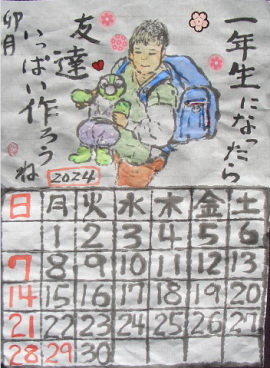 一年生になったら
友達
いっぱい作ろうね
卯月
2024
日 月 火 水 木 金 土
1 2 3 4 5 6
7 8 9 10 11 12 13
14 15 16 17 18 19 20
21 22 23 24 25 26 27
28 29 30